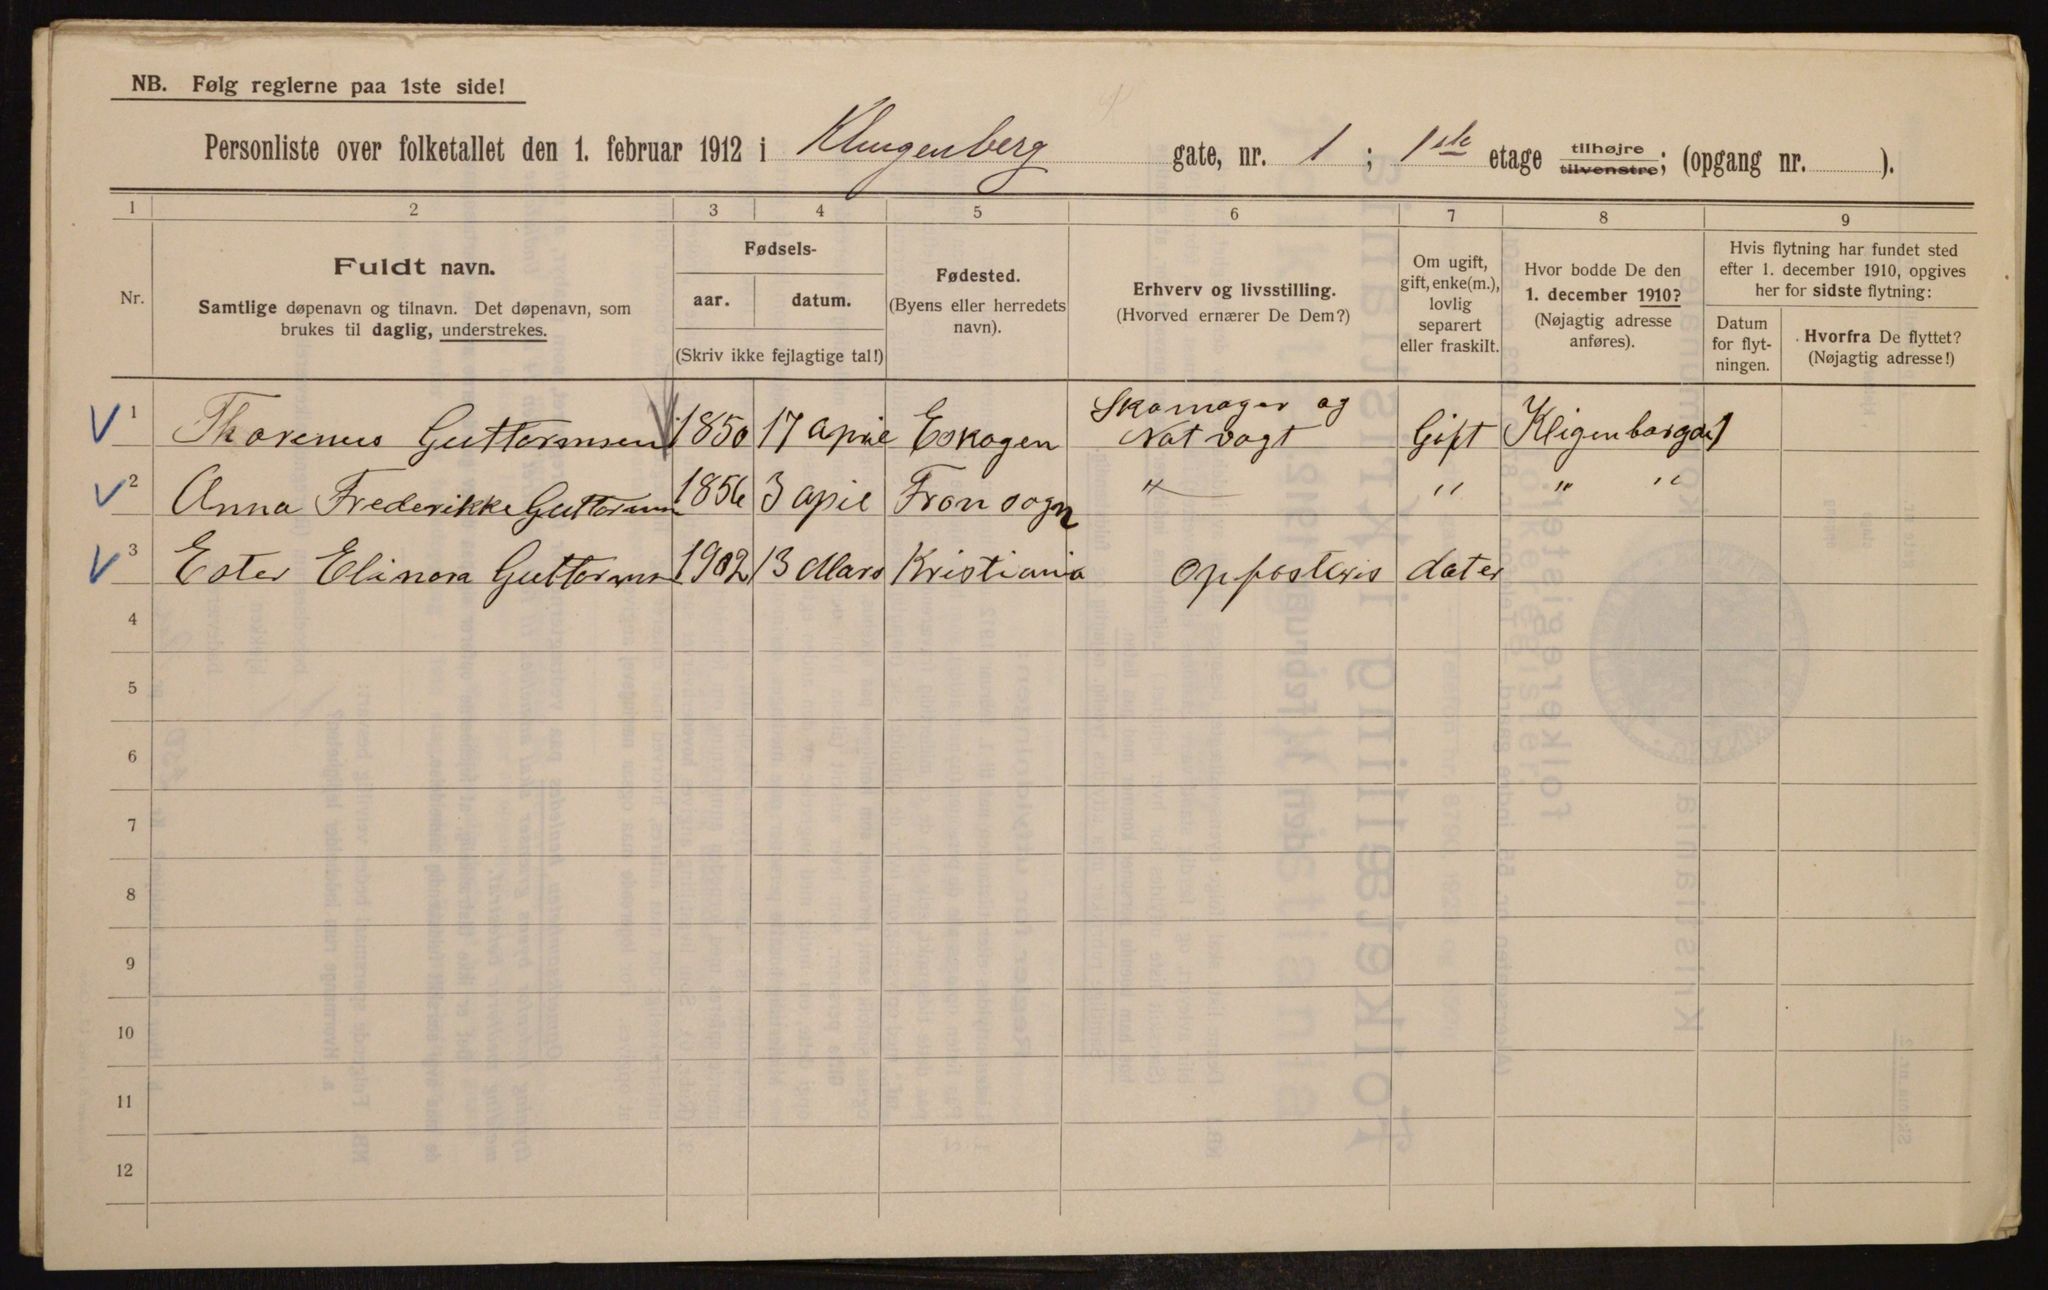 NB. Følg reglerne paa 1ste side!
Personliste over folketallet den 1. februar 1912 i Klingenberg gate, nr. 1 ; 1ste etage tilhøjre tilvenstre; (opgang nr. ).
1 2 3 4 5 6 7 8 9
Nr.
Fuldt navn.
Samtlige døpenavn og tilnavn. Det døpenavn, som
brukes til daglig, understrekes.
Fødsels-
aar. datum.
(Skriv ikke fejlagtige tal!)
Fødested.
(Byens eller herredets
navn).
Erhverv og livsstilling.
(Hvorved ernærer De Dem?)
Om ugift,
gift, enke(m.),
lovlig
separert
eller fraskilt.
Hvor bodde De den
1. december 1910?
(Nøjagtig adresse
anføres).
Hvis flytning har fundet sted
efter 1. december 1910, opgives
her for sidste flytning:
Datum
for flyt-
ningen.
Hvorfra De flyttet?
(Nøjagtig adresse!)
1 Thorenus Guttormsen 1850 17 April Eskogen Skomager og Natvagt Gift Kligenborgga 1
2 Anna Frederikke Guttormsen 1856 3 April Fron sogn " " " "
3 Ester Elinora Guttormsen 1902 13 Mars Kristiania Opfosteris dater
4
5
6
7
8
9
10
11
12